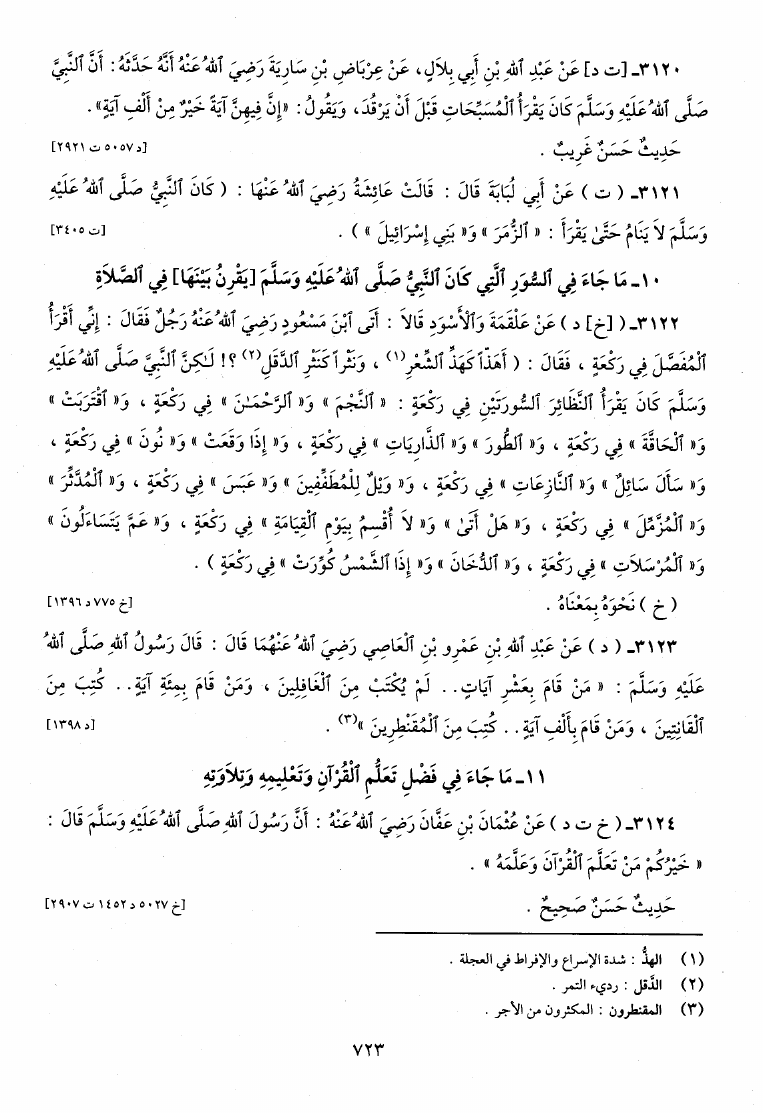 ٣١٢٠ـ [ت د] عَنْ عَبْدِ ٱللهِ بْنِ أَبِي بِلاَلٍ، عَنْ عِرْبَاضِ بْنِ سَارِيَةَ رَضِيَ ٱللهُ عَنْهُ أَنَّهُ حَدَّثَهُ: أَنَّ ٱلنَّبِيَّ
صَلَّى ٱللهُ عَلَيْهِ وَسَلَّمَ كَانَ يَقْرَأُ ٱلْمُسَبِّحَاتِ قَبْلَ أَنْ يَرْقُدَ، وَيَقُولُ: «إِنَّ فِيهِنَّ آيَةً خَيْرٌ مِنْ أَلْفِ آيَةٍ».
حَدِيثٌ حَسَنٌ غَرِيبٌ . [د ٥٠٥٧ ت ٢٩٢١]
٣١٢١ـ ( ت ) عَنْ أَبِي لُبَابَةَ قَالَ : قَالَتْ عَائِشَةُ رَضِيَ ٱللهُ عَنْهَا : ( كَانَ ٱلنَّبِيُّ صَلَّى ٱللهُ عَلَيْهِ
وَسَلَّمَ لاَ يَنَامُ حَتَّىٰ يَقْرَأَ : « ٱلزُّمَرَ » وَ« بَنِي إِسْرَائِيلَ » ) . [ت ٣٤٠٥]
١٠ـ مَا جَاءَ فِي ٱلسُّوَرِ ٱلَّتِي كَانَ ٱلنَّبِيُّ صَلَّى ٱللهُ عَلَيْهِ وَسَلَّمَ [يَقْرِنُ بَيْنَهَا] فِي ٱلصَّلاَةِ
٣١٢٢ـ ( [خ] د ) عَنْ عَلْقَمَةَ وَٱلْأَسْوَدِ قَالاَ : أَتَى ٱبْنَ مَسْعُودٍ رَضِيَ ٱللهُ عَنْهُ رَجُلٌ فَقَالَ : إِنِّي أَقْرَأُ
ٱلْمُفَصَّلَ فِي رَكْعَةٍ ، فَقَالَ : ( أَهَذّاً كَهَذِّ ٱلشِّعْرِ(١) ، وَنَثْراً كَنَثْرِ ٱلدَّقَلِ(٢) ؟! لَـٰكِنَّ ٱلنَّبِيَّ صَلَّى ٱللهُ عَلَيْهِ
وَسَلَّمَ كَانَ يَقْرَأُ ٱلنَّظَائِرَ ٱلسُّورَتَيْنِ فِي رَكْعَةٍ : « ٱلنَّجْمَ » وَ« ٱلرَّحْمَـٰنَ » فِي رَكْعَةٍ ، وَ« ٱقْتَرَبَتْ »
وَ« ٱلْحَاقَّةَ » فِي رَكْعَةٍ ، وَ« ٱلطُّورَ » وَ« ٱلذَّارِيَاتِ » فِي رَكْعَةٍ ، وَ« إِذَا وَقَعَتْ » وَ« نُونَ » فِي رَكْعَةٍ ،
وَ« سَأَلَ سَائِلٌ » وَ« ٱلنَّازِعَاتِ » فِي رَكْعَةٍ ، وَ« وَيْلٌ لِلْمُطَفِّفِينَ » وَ« عَبَسَ » فِي رَكْعَةٍ ، وَ« ٱلْمُدَّثِّرَ »
وَ« ٱلْمُزَّمِّلَ » فِي رَكْعَةٍ ، وَ« هَلْ أَتَىٰ » وَ« لاَ أُقْسِمُ بِيَوْمِ ٱلْقِيَامَةِ » فِي رَكْعَةٍ ، وَ« عَمَّ يَتَسَاءَلُونَ »
وَ« ٱلْمُرْسَلاَتِ » فِي رَكْعَةٍ ، وَ« ٱلدُّخَانَ » وَ« إِذَا ٱلشَّمْسُ كُوِّرَتْ » فِي رَكْعَةٍ ) .
( خ ) نَحْوَهُ بِمَعْنَاهُ . [خ ٧٧٥ د ١٣٩٦]
٣١٢٣ـ ( د ) عَنْ عَبْدِ ٱللهِ بْنِ عَمْرِو بْنِ ٱلْعَاصِي رَضِيَ ٱللهُ عَنْهُمَا قَالَ : قَالَ رَسُولُ ٱللهِ صَلَّى ٱللهُ
عَلَيْهِ وَسَلَّمَ : « مَنْ قَامَ بِعَشْرِ آيَاتٍ.. لَمْ يُكْتَبْ مِنَ ٱلْغَافِلِينَ ، وَمَنْ قَامَ بِمِئَةِ آيَةٍ.. كُتِبَ مِنَ
ٱلْقَانِتِينَ ، وَمَنْ قَامَ بِأَلْفِ آيَةٍ.. كُتِبَ مِنَ ٱلْمُقَنْطِرِينَ »(٣) . [د ١٣٩٨]
١١ـ مَا جَاءَ فِي فَضْلِ تَعَلُّمِ ٱلْقُرْآنِ وَتَعْلِيمِهِ وَتِلاَوَتِهِ
٣١٢٤ـ ( خ ت د ) عَنْ عُثْمَانَ بْنِ عَفَّانَ رَضِيَ ٱللهُ عَنْهُ : أَنَّ رَسُولَ ٱللهِ صَلَّى ٱللهُ عَلَيْهِ وَسَلَّمَ قَالَ :
« خَيْرُكُمْ مَنْ تَعَلَّمَ ٱلْقُرْآنَ وَعَلَّمَهُ » .
حَدِيثٌ حَسَنٌ صَحِيحٌ . [خ ٥٠٢٧ د ١٤٥٢ ت ٢٩٠٧]
(١) الهذُّ : شدة الإسراع والإفراط في العجلة .
(٢) الدَّقل : رديء التمر .
(٣) المقنطرون : المكثرون من الأجر .
٧٢٣